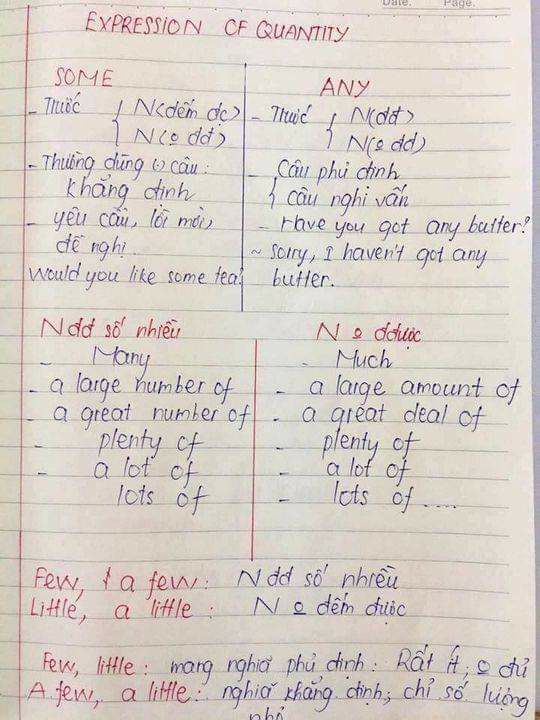 Date. Page.
EXPRESSION OF QUANTITY
SOME
- Trước { N(đếm đc)
N(o đđ)
- Thường dùng (-) câu:
khẳng định
- yêu cầu, lời mời,
đề nghị
Would you like some tea?
ANY
- Trước { N(đđ)
N(o đđ)
- { Câu phủ định
câu nghi vấn
- Have you got any butter?
~ Sorry, I haven't got any
butter.
N đđ số nhiều
- Many
- a large number of
- a great number of
- plenty of
- a lot of
lots of
N o đđược
- Much
- a large amount of
- a great deal of
- plenty of
- a lot of
- lots of .....
Few, a few: N đđ số nhiều
Little, a little: N o đếm được
Few, little: mang nghĩa phủ định: Rất ít, o đủ
A few, a little: nghĩa khẳng định; chỉ số lượng
nhỏ